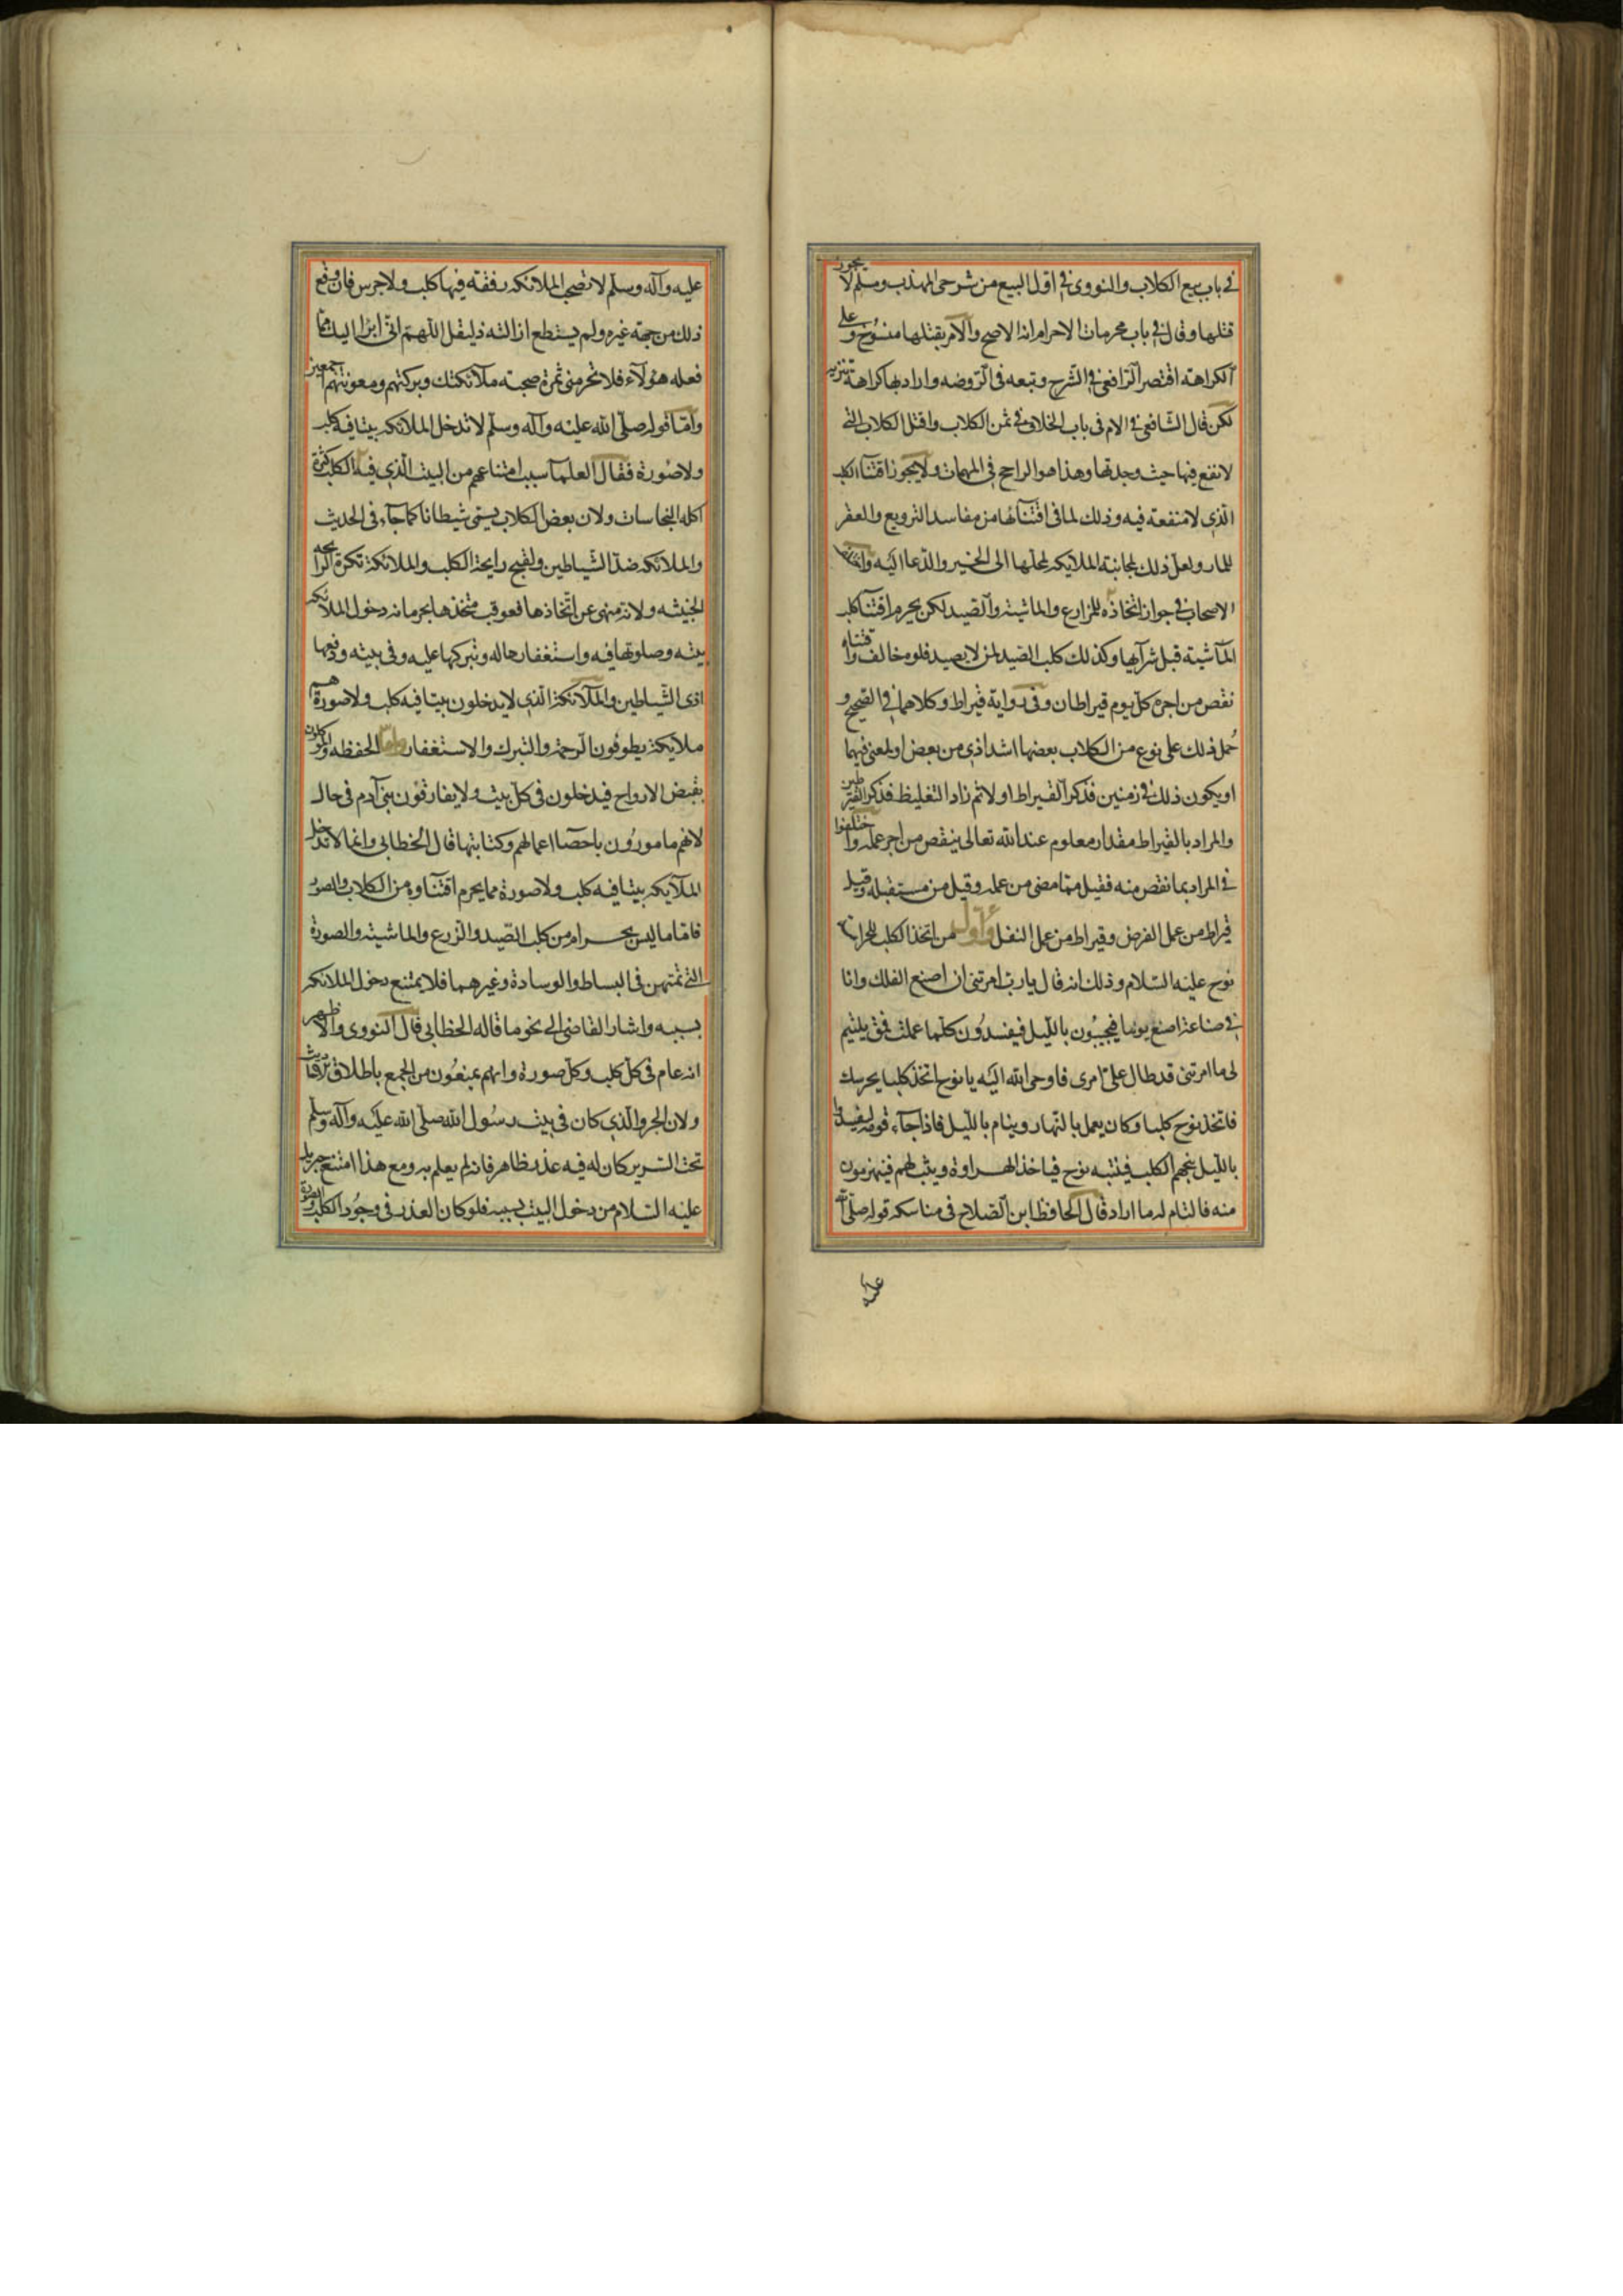 في باب بيع الكلاب والنووى في اول البيع من شرحى المهذب ومسلم لا يجوز
قتلها وقال في باب محرمات الاحرام انه الاصح والامر بقتلها منسوخ وعلى
الكراهة اقتصر الرافعى في الشرح وتبعه فى الروضه وارادبها كراهة تنزيه
لكن قال الشافعى في الام فى باب الخلاف في ثمن الكلاب واقتل الكلاب التى
لا نفع فيها حيث وجدتها وهذا هو الراجح فى المهمات ولا يجوز اقتنآ الكلب
الذى لا منفعة فيه وذلك لما فى اقتنآئها من مفاسد الترويع والعقر
للمار ولعل ذلك لمجانبة الملايكه لمحلها الى الخير والدعا اليه
الاصحاب في جواز اتخاذه للمزارع والماشية والصيد لكن يحرم اقتنآ كلب
المآشية قبل شرآيها وكذلك كلب الصيد لمن لا يصيد فلو خالف واقتناه
نقص من اجره كل يوم قيراطان وفى رواية قيراط وكلاهما في الصحيح و
حُمل ذلك على نوع من الكلاب بعضها اشد اذى من بعض او لمعنى فيها
او يكون ذلك في زمنين فذكر القيراط اولا ثم زاد التغليظ فذكر القيراطين
والمراد بالقيراط مقدار معلوم عند الله تعالى ينقص من اجر عمله واختلفوا
في المراد بما نقص منه فقيل مما مضى من عمله وقيل من مستقبله وقيل
قيراط من عمل الفرض وقيراط من عمل النفل وأول من اتخذ الكلب للحراسة
نوح عليه السلام وذلك انه قال يارب امرتنى ان اصنع الفلك وانا
في صناعة اصنع يوما فيجيئون بالليل فيفسدُون كلما عملت فمتى يلتيم
لى ما امرتنى قد طال على امرى فاوحى الله اليه يا نوح اتخذ كلبا يحرسك
فاتخذ نوح كلبا وكان يعمل بالنهار وينام بالليل فاذا جآء قومه ليفسدوا
بالليل ينبحهم الكلب فينتبه نوح فياخذ الهراوة ويثب لهم فينهزمون
منه فالتام له ما اراد قال الحافظ ابن الصلاح فى مناسكه قوله صلى الله
عليه
عليه وآله وسلم لا تصحب الملائكه رفقة فيها كلب ولا جرس فان وقع
ذلك من جهة غيره ولم يستطع ازالته فليقل اللهم انى ابرأ اليك مما
فعله هؤلآء فلا تحرمنى ثمرة صحبة ملآئكتك وبركتهم ومعونتهم اجمعين
وامّا قوله صلى الله عليه وآله وسلم لا تدخل الملائكه بيتا فيه كلب
ولا صُورة فقال العلمآ سبب امتناعهم من البيت الذى فيه الكلب كثرة
اكله النجاسات ولان بعض الكلاب يسمى شيطانا كما جآء فى الحديث
والملائكه ضد الشياطين ولقبح رايحة الكلب والملائكة تكره الرايحه
الخبيثه ولانه منهى عن اتخاذها فعوقب متخذها بحرمانه دخول الملائكه
بيته وصلوتها فيه واستغفارها له وتبركها عليه وفى بيته ودفعها
اذى الشياطين والملآئكة الذى لا يدخلون بيتا فيه كلب ولا صورة هم
ملآيكة يطوفون الرحمة والتبرك والاستغفار وامّا الحفظه والموكلون
بقبض الارواح فيدخلون فى كل بيت ولا يفارقون بنى آدم فى حال
لانهم مامورُون باحصآ اعمالهم وكتابتها قال الخطابى وانما لا تدخل
الملآيكه بيتا فيه كلب ولا صورة مما يحرم اقتنآوه من الكلاب والصور
فامّا ما ليس بحرام من كلب الصيد والزرع والماشية والصورة
التى تمتهن فى البساط والوسادة وغيرهما فلا يمتنع دخول الملائكه
بسببه واشار القاضى الى نحو ما قاله الخطابى قال النووى والاظهر
انه عام فى كل كلب وكل صورة وانهم يمنعُون من الجميع باطلاق
ولان الجرو الذى كان فى بيت رسُول الله صلى الله عليه وآله وسلم
تحت السرير كان له فيه عذر ظاهر فانه لم يعلم به ومع هذا امتنع جبريل
عليه السلام من دخول البيت بسببه فلو كان العذر فى وجُود الكلب والصورة